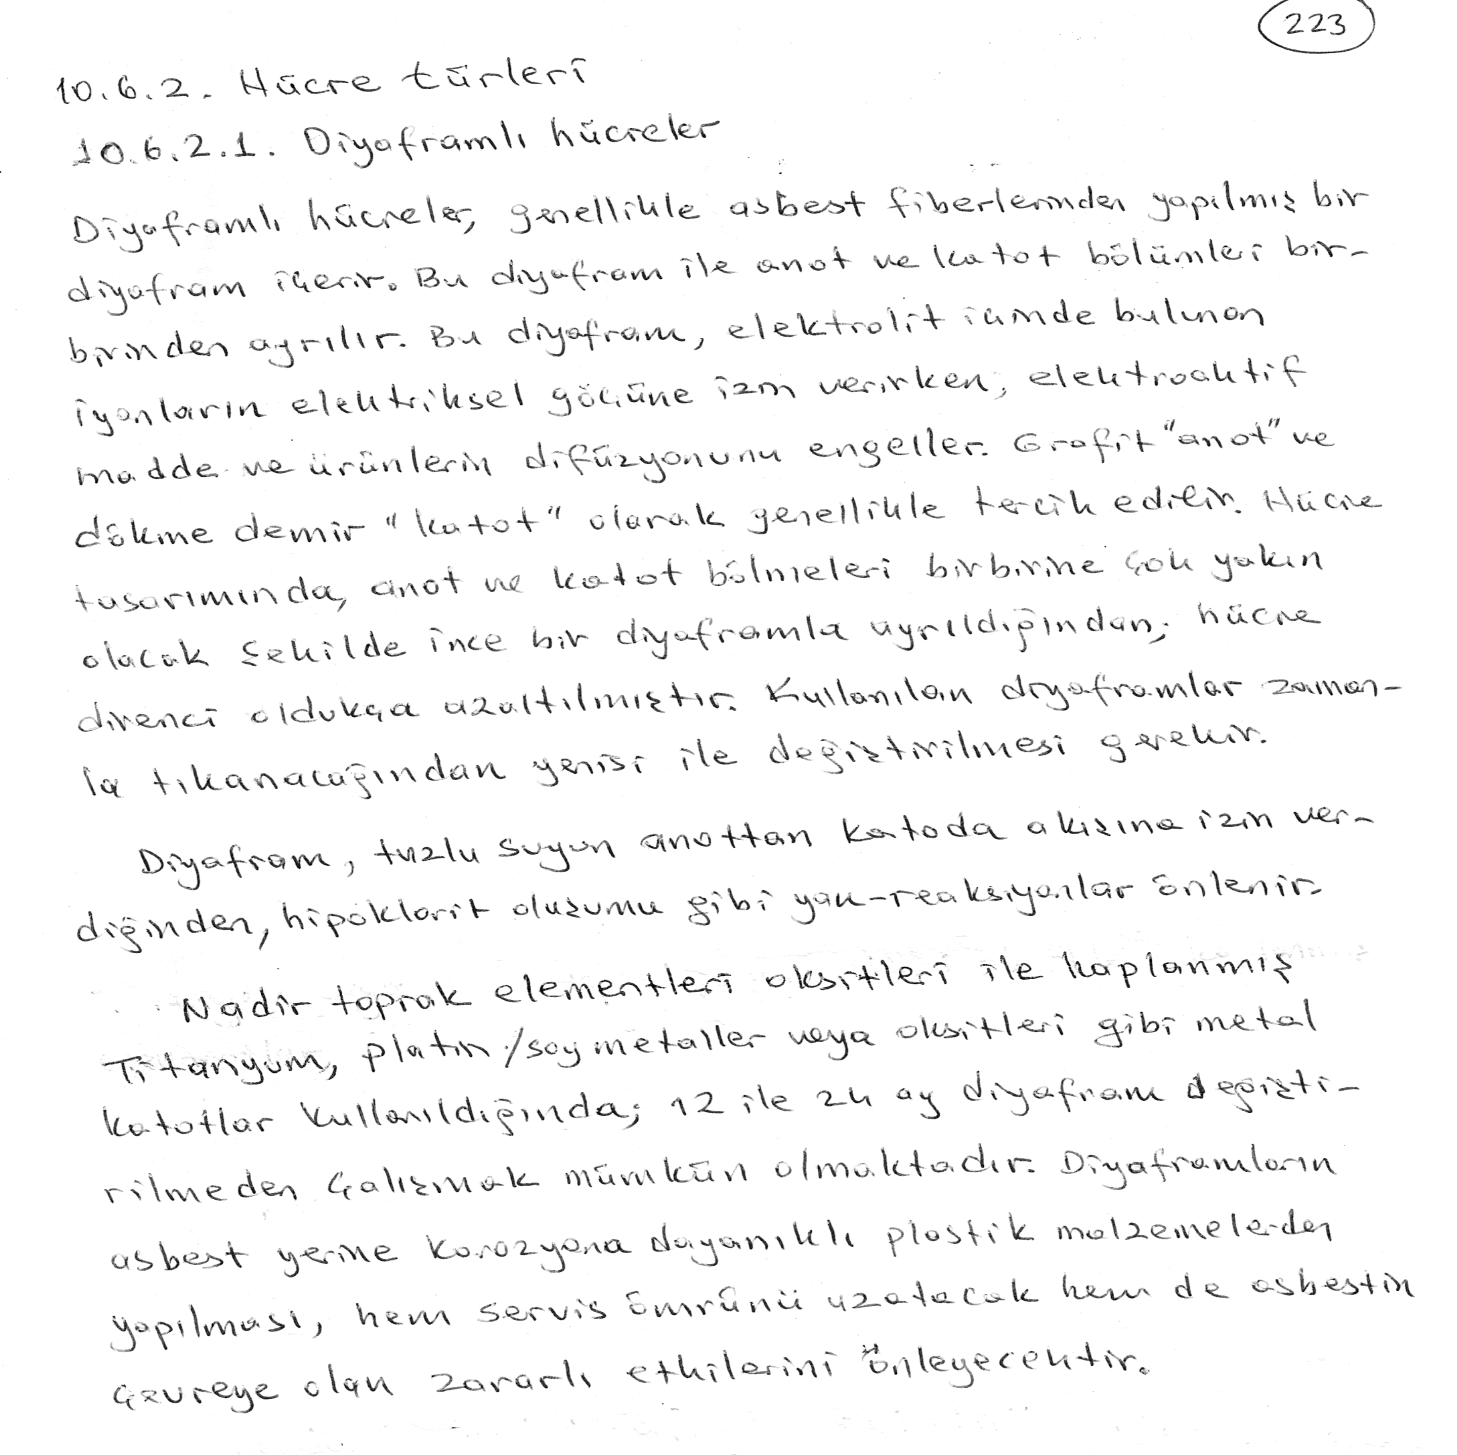 223
10.6.2. Hücre türleri
10.6.2.1. Diyaframlı hücreler
Diyaframlı hücreler, genellikle asbest fiberlerinden yapılmış bir
diyafram içerir. Bu diyafram ile anot ve katot bölümleri bir-
birinden ayrılır. Bu diyafram, elektrolit içinde bulunan
iyonların elektriksel göçüne izin verirken, elektroaktif
madde ve ürünlerin difüzyonunu engeller. Grafit "anot" ve
dökme demir "katot" olarak genellikle tercih edilir. Hücre
tasarımında, anot ve katot bölmeleri birbirine çok yakın
olacak şekilde ince bir diyaframla ayrıldığından, hücre
direnci oldukça azaltılmıştır. Kullanılan diyaframlar zaman-
la tıkanacağından yenisi ile değiştirilmesi gerekir.
Diyafram, tuzlu suyun anottan katoda akışına izin ver-
diğinden, hipoklorit oluşumu gibi yan-reaksiyonlar önlenir.
Nadir toprak elementleri oksitleri ile kaplanmış
Titanyum, platin/soy metaller veya oksitleri gibi metal
katotlar kullanıldığında; 12 ile 24 ay diyafram değişti-
rilmeden çalışmak mümkün olmaktadır. Diyaframların
asbest yerine korozyona dayanıklı plastik malzemelerden
yapılması, hem servis ömrünü uzatacak hem de asbestin
çevreye olan zararlı etkilerini önleyecektir.